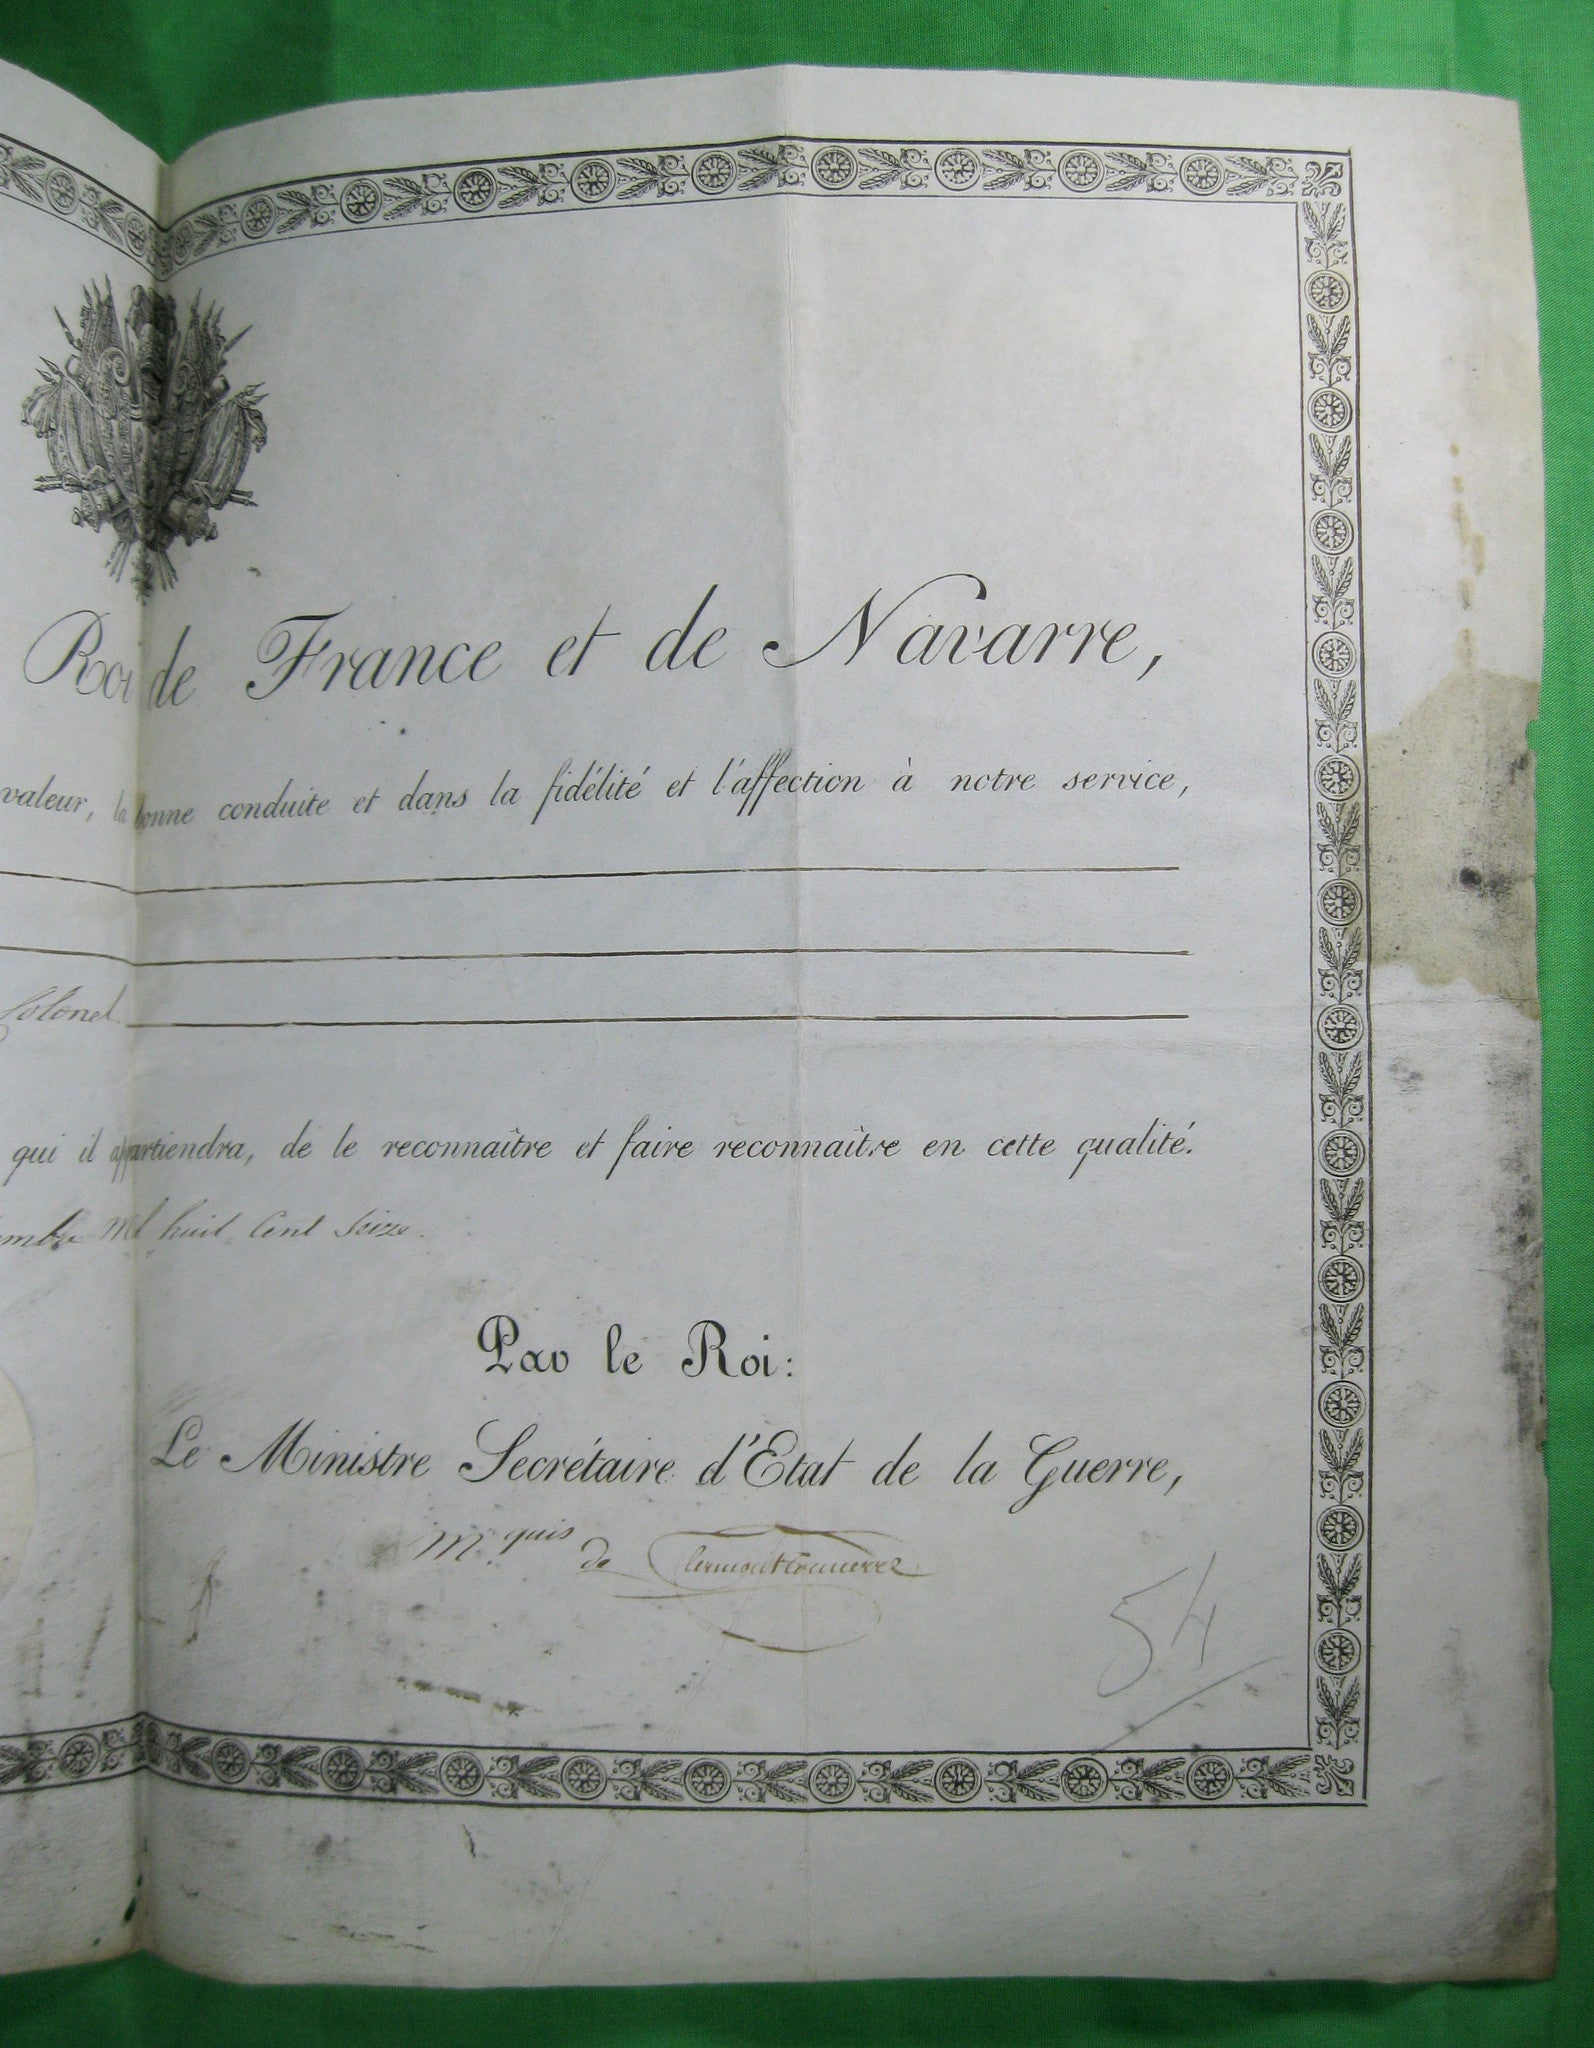 Roi de France et de Navarre,
valeur, la bonne conduite et dans la fidélité et l'affection à notre service,
Colonel
qui il appartiendra, de le reconnaître et faire reconnaître en cette qualité.
mbre Mil huit Cent Seize.
Par le Roi:
Le Ministre Secrétaire d'Etat de la Guerre,
M.quis de Clermont Tonnerre
54